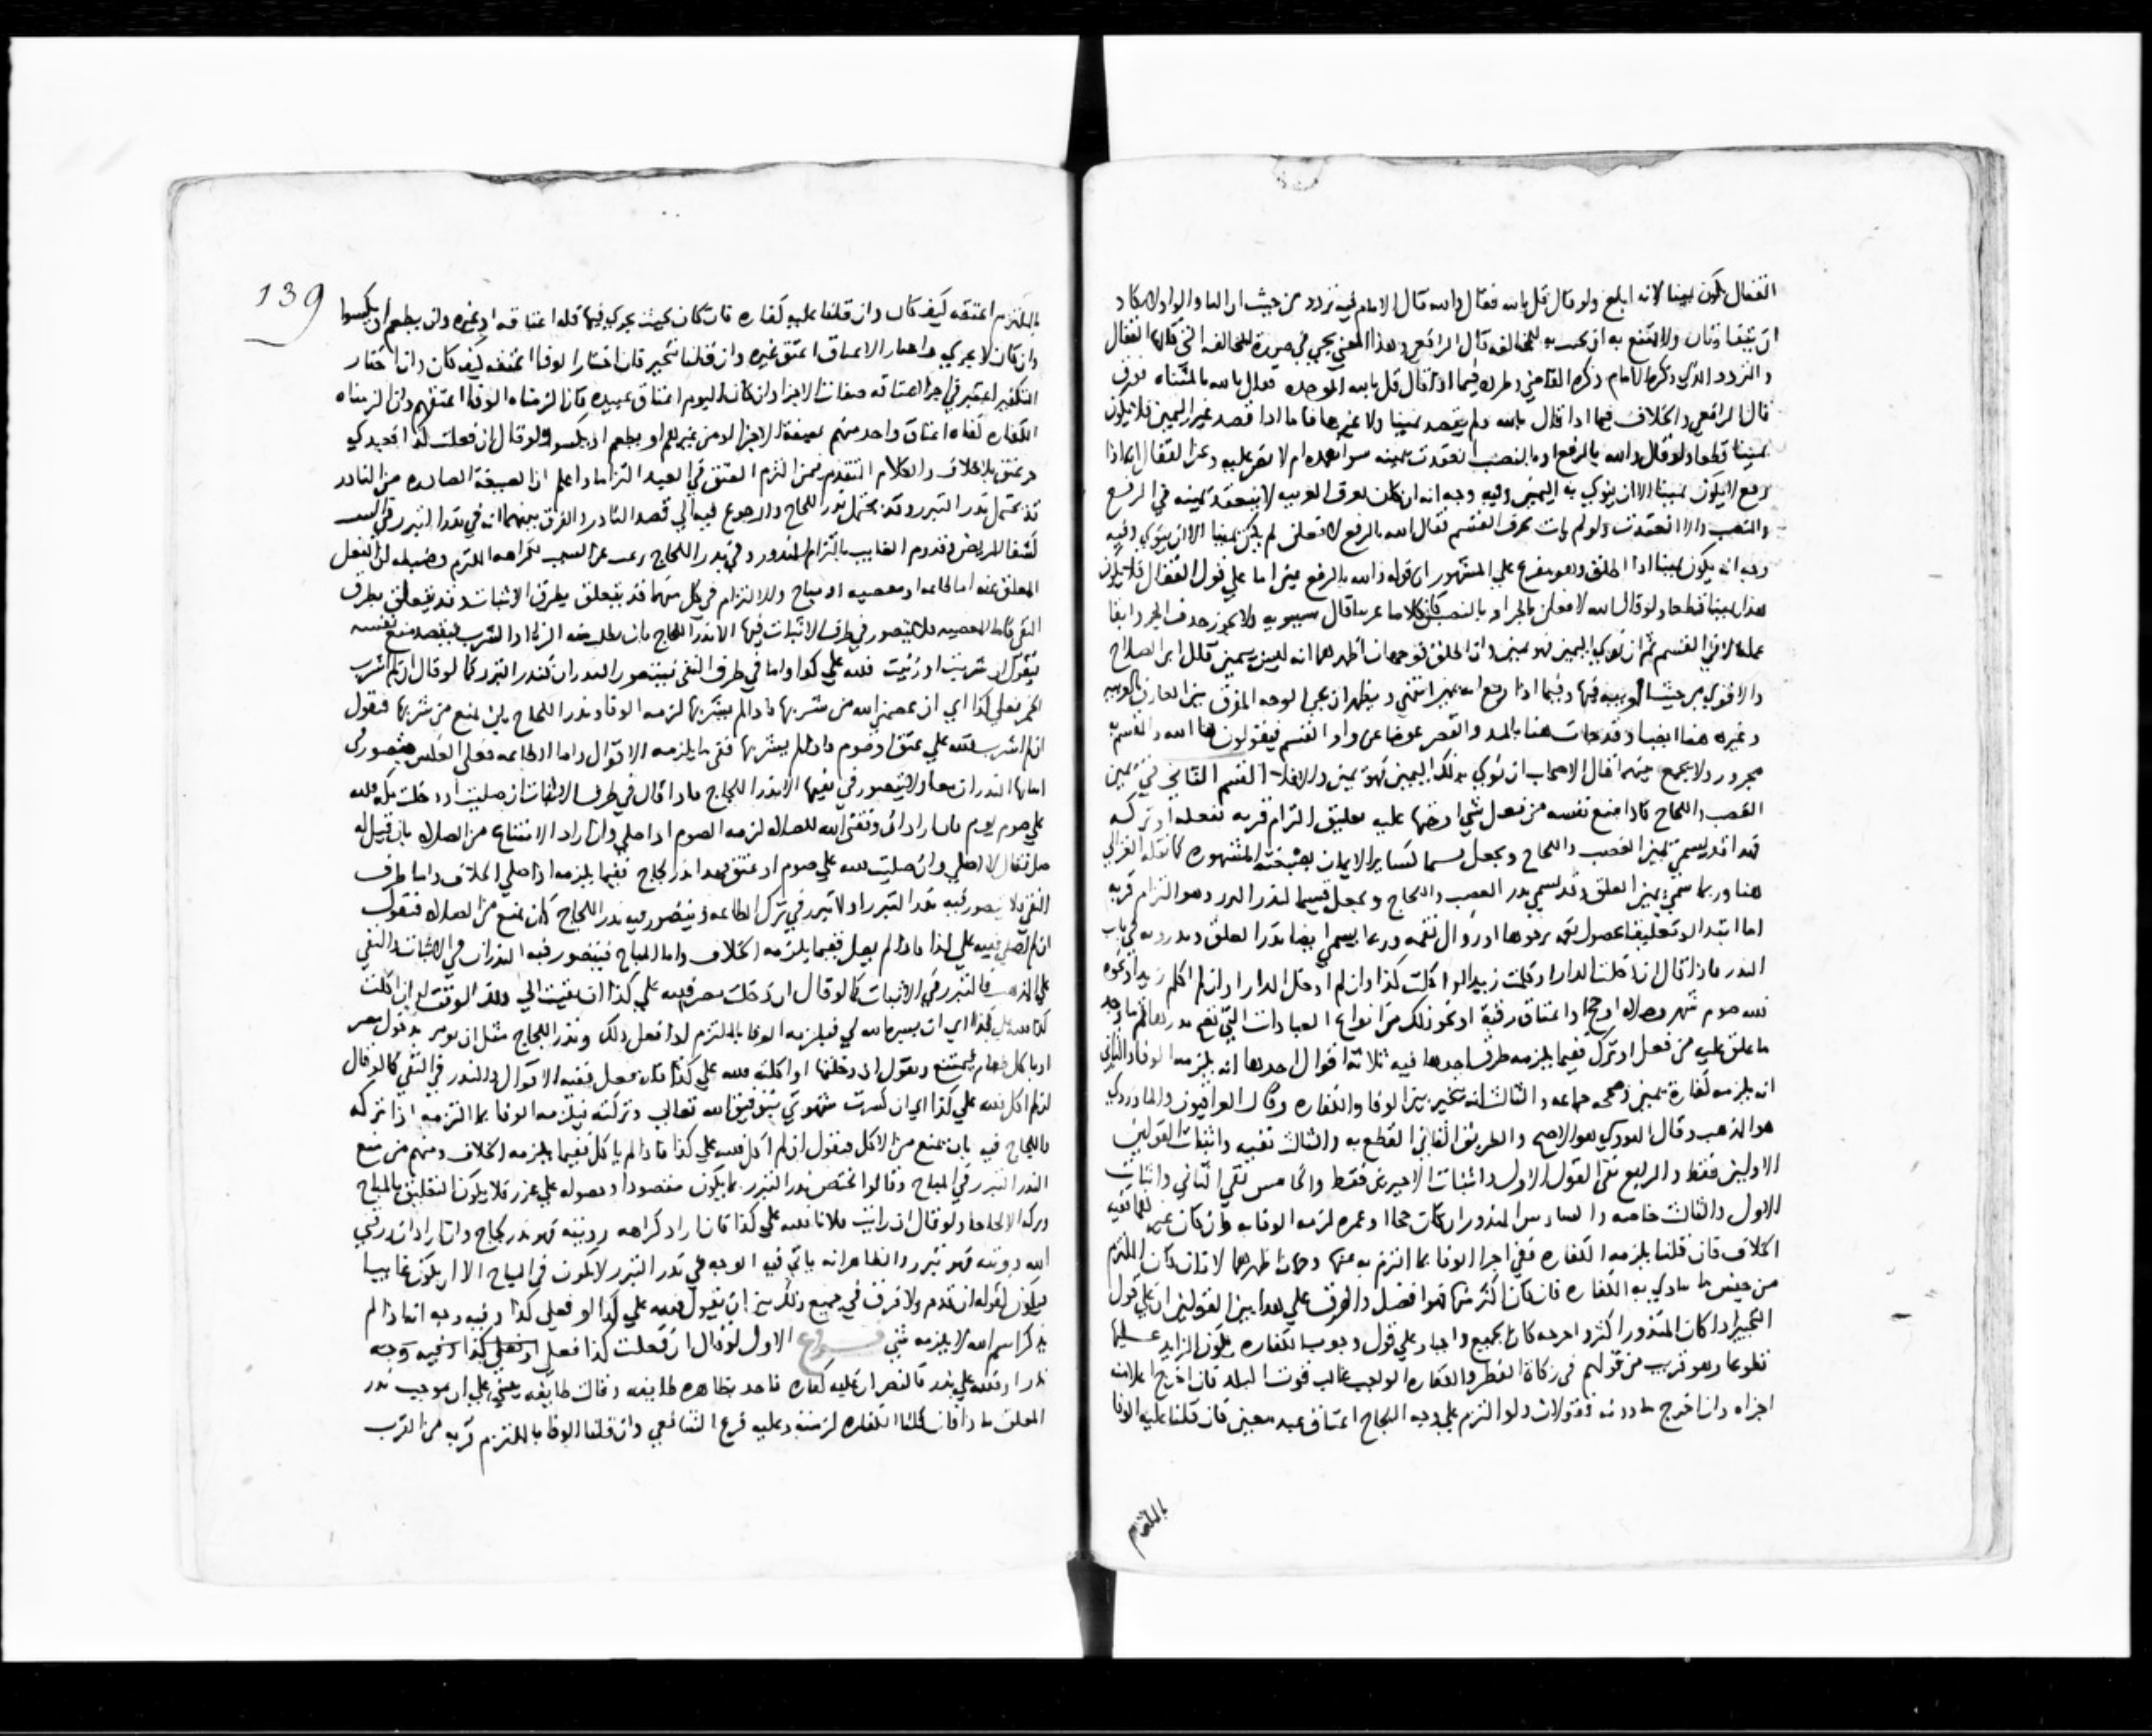 القفال يكون يمينا لانه ابلغ ولو قال قل بالله فقال والله قال الامام فيه تردد من حيث ان البا والواو لا يكاد
ان يتفاوتان ولا يمتنع به ان يحسب به للمخالفه قال الرافعي وهذا المعني يجي في صورة المخالفه التي قالها القفال
والتردد الذي ذكره الامام ذكره القاضي وطرده فيما اذا قال قل بالله الموحده فقال بالله بالمثناه فوق
قال الرافعي والخلاف فيما اذا قال بالله ولم يقصد يمينا ولا غيرها فاما اذا قصد غير اليمين فلا يكون
يمينا قطعا ولو قال والله بالرفع او بالنصب انعقدت يمينه سوا تعمده ام لا نص عليه وعن القفال انه اذا
رفع لا يكون يمينا الا ان ينوي به اليمين وفيه وجه انه ان كان يعرف العربيه لا ينعقد يمينه في الرفع
والنصب والا انعقدت ولو لم يات بحرف القسم فقال الله بالرفع لافعلن لم يكن يمينا الا ان ينوي وفيه
وجه انه يكون يمينا اذا اطلق وهو مفرع علي المشهور ان قوله والله بالرفع يمين اما علي قول القفال فلا يكون
هذا يمينا قطعا ولو قال الله لافعلن بالجر او بالنصب كان كلاما عربيا قال سيبويه ولا يجوز حذف الجر وابقا
عمله الا في القسم ثم ان نوي اليمين فهو يمين وان اطلق فوجهان اظهرهما انه ليس بيمين قال ابن الصلاح
والاقوي من حيث العربيه فيها وفيما اذا رفع انه يمين انتهي ويظهر ان يجي الوجه المفرق بين العارف بالعربيه
وغيره هنا ايضا وقد جات هنا بالمد والقصر عوضا عن واو القسم فيقولون ها الله والقسم به
مجرور ولا يجمع بينهما قال الاصحاب ان نوي بذلك اليمين فهو يمين والا فلا القسم الثاني في يمين
الغضب واللجاج فاذا منع نفسه من فعل شي او حثها عليه بتعليق التزام قربه بفعله او تركه
فهذا قد يسمي يمين الغضب واللجاج ويجعل قسما لسائر الايمان بصيغته المشهوره كما نقله الغزالي
هنا وربما سمي يمين العلق وقد يسمي نذر الغضب واللجاج ويجعل قسيما لنذر التبرر وهو التزام قربه
اما ابتداا او تعليقا بحصول نعمه يرجوها او زوال نقمه وربما يسمي ايضا نذر العلق ويذكرونه في باب
النذر فاذا قال ان دخلت الدار او كلمت زيدا او اكلت كذا وان لم ادخل الدار او ان لم اكلم زيدا ونحوه
فلله صوم شهر وصلاه او حج او اعتاق رقبة او نحو ذلك من انواع العبادات التي تصح نذرها ثم وجد
ما علق عليه من فعل او ترك ففيما يلزمه طرق احدها فيه ثلاثة اقوال احدها انه يلزمه الوفا والثاني
انه يلزمه كفارة يمين وصححه جماعه والثالث انه يتخير بين الوفا والكفاره وقال العراقيون والماوردي
هو المذهب وقال النووي هو الاصح والطريق الثاني القطع به والثالث نفيه واثبات القولين
الاولين فقط والرابع نفي القول الاول واثبات الاخيرين فقط والخامس نفي الثاني واثبات
الاول والثالث خاصه والسادس المنذور ان كان حجا او عمره لزمه الوفا به وان كان غيرهما ففيه
الخلاف فان قلنا يلزمه الكفاره ففي اجزا الوفا بما التزم به عنها وجهان اظهرهما لا فان كان الملتزم
من جنس ما يتادي به الكفاره فان كان اكثر منها فهو افضل والفرق علي هذا بين القولين ان علي قول
التخيير اذا كان المنذور اكثر واخرجه كان الجميع واجبا وعلي قول وجوب الكفاره يكون الزايد عليها
تطوعا وهو قريب من قولهم في زكاة الفطر والكفاره الواجب غالب قوت البلد فان اخرج اعلا منه
اجزاه وان اخرج ما دونه فقولان ولو التزم علي وجه اللجاج اعتاق عبد معين فان قلنا عليه الوفا
بالملتزم
139
بالملتزم اعتقه كيف كان وان قلنا عليه كفاره فان كان بحيث يجزي فيها فله اعتاقه او غيره وان يطعم او يكسوا
وان كان لا يجزي واختار الاعتاق اعتق غيره وان قلنا يتخير فان اختار الوفا اعتقه كيف كان وان اختار
التكفير اعتبر في اجزا اعتاقه صفات الاجزا وان كان اليوم اعتاق عبيده فان الزمناه الوفا اعتقهم وان الزمناه
الكفاره كفاه اعتاق واحد منهم بصيغة الاجزا او من غيرهم او يطعم او يكسوا ولو قال ان فعلت كذا فعبدي
حر عتق بلا خلاف والكلام المتقدم فيمن التزم العتق في العبد التزاما واعلم ان الصيغة الصادره من الناذر
قد يحتمل نذر التبرر وقد يحتمل نذر اللجاج والرجوع فيه الي قصد الناذر والفرق بينهما انه في نذر التبرر يرغب في السبب
كشفا المريض وقدوم الغايب بالتزام المنذور وفي نذر اللجاج يرغب عن السبب لكراهه الملتزم وضبطه ان الفعل
المعلق عنه اما طاعه او معصيه او مباح والالتزام في كل منهما قد يتعلق بطرف الاثبات وقد يتعلق بطرف
النفي فاما المعصيه فلا يتصور في طرف الاثبات فيها الا نذر اللجاج بان يطلب منه الزنا او الشرب فيقصد منع نفسه
فيقول ان شربت او زنيت فلله علي كذا واما في طرف النفي فيتصور النذران كنذر التبرر كما لو قال ان لم اشرب
الخمر فعلي كذا اي ان عصمني الله من شربها فاذا لم يشربها لزمه الوفا ونذر اللجاج بان يمنع من شربها فيقول
ان لم اشرب فلله علي عتق او صوم واذا لم يشربها ففي ما يلزمه الاقوال واما الطاعه فعلي العكس يتصور في
اثباتها النذران معا ولا يتصور في نفيها الا نذر اللجاج فاذا قال في طرف الاثبات ان صليت او دخلت مكه فلله
علي صوم يوم فان اراد ان وفقني الله للصلاه لزمه الصوم اذا صلي وان اراد الامتناع من الصلاه بان قيل له
صل فقال لا اصلي وان صليت فلله علي صوم او عتق فهذا نذر لجاج ففيما يلزمه اذا صلي الخلاف واما طرف
النفي فلا يتصور فيه نذر التبرر اذ لا تبرر في ترك الطاعه ويتصور فيه نذر اللجاج كان يمنع من الصلاه فيقول
ان لم اصلي فلله علي كذا فاذا لم يصل ففيما يلزمه الخلاف واما المباح فيتصور فيه النذران في الاثبات والنفي
علي المذهب فالتبرر في الاثبات كما لو قال ان دخلت مصر فلله علي كذا ان بقيت الي ذلك الوقت او ان اكلت
كذا فلله علي كذا اي ان يسره الله لي فيلزمه الوفا بالملتزم اذا فعل ذلك ونذر اللجاج مثل ان يومر بدخول مصر
او باكل طعام فيمتنع ويقول ان دخلتها او اكلته فلله علي كذا فان فعل ففيه الاقوال والنذر في النفي كما لو قال
ان لم اكل فلله علي كذا اي ان كسرت شهوتي بتوفيق الله تعالي وتركته فيلزمه الوفا بما التزمه اذا تركه
واللجاج فيه بان يمنع من الاكل فيقول ان لم اكل فلله علي كذا فاذا لم ياكل ففيما يلزمه الخلاف ومنهم من منع
النذر التبرر في المباح وقالوا يختص نذر التبرر بما يكون مقصودا وحصوله علي عزر فلا يكون التعليق بالمباح
ولو قال ان رايت فلانا فلله علي كذا فان اراد كراهه رويته فهو نذر لجاج وان اراد ان رزقني
الله رويته فهو تبرر والظاهر انه ياتي فيه الوجه في نذر التبرر لا يكون في المباح الا ان يكون غايبا
فيكون كقوله ان قدم ولا فرق في جميع ذلك بين ان يقول فلله علي كذا او فعلي كذا وفيه وجه انه اذا لم
يذكر اسم الله لا يلزمه شي فروع الاول لو قال ان فعلت كذا فعلي او فعلي كذا وفيه وجه
نذر او فلله علي نذر فالنص ان عليه كفاره فاخذ بظاهره طايفه وقالت طايفه مبني علي ان موجب نذر
المعلق ماذا فان قلنا الكفاره لزمته وعليه فرع الشافعي وان قلنا الوفا بالملتزم قربه من القرب